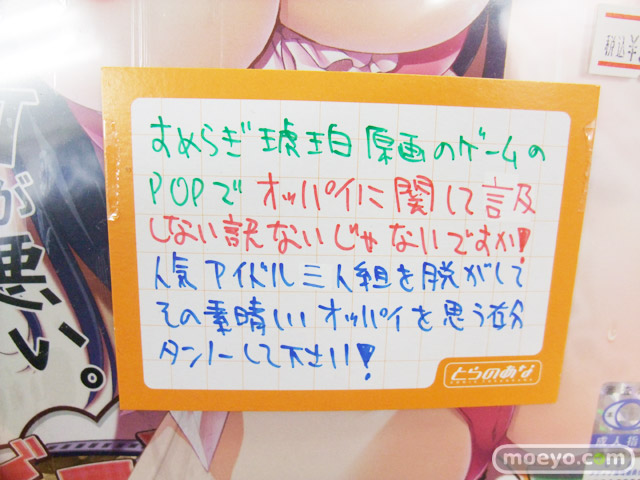 すめらぎ琥珀原画のゲームの
POPでオッパイに関して言及
しない訳ないじゃないですか!
人気アイドル三人組を脱がして
その素晴しいオッパイを思う存分
タンノーして下さい!
とらのあな
税込¥
が
悪い。
moeyo.com